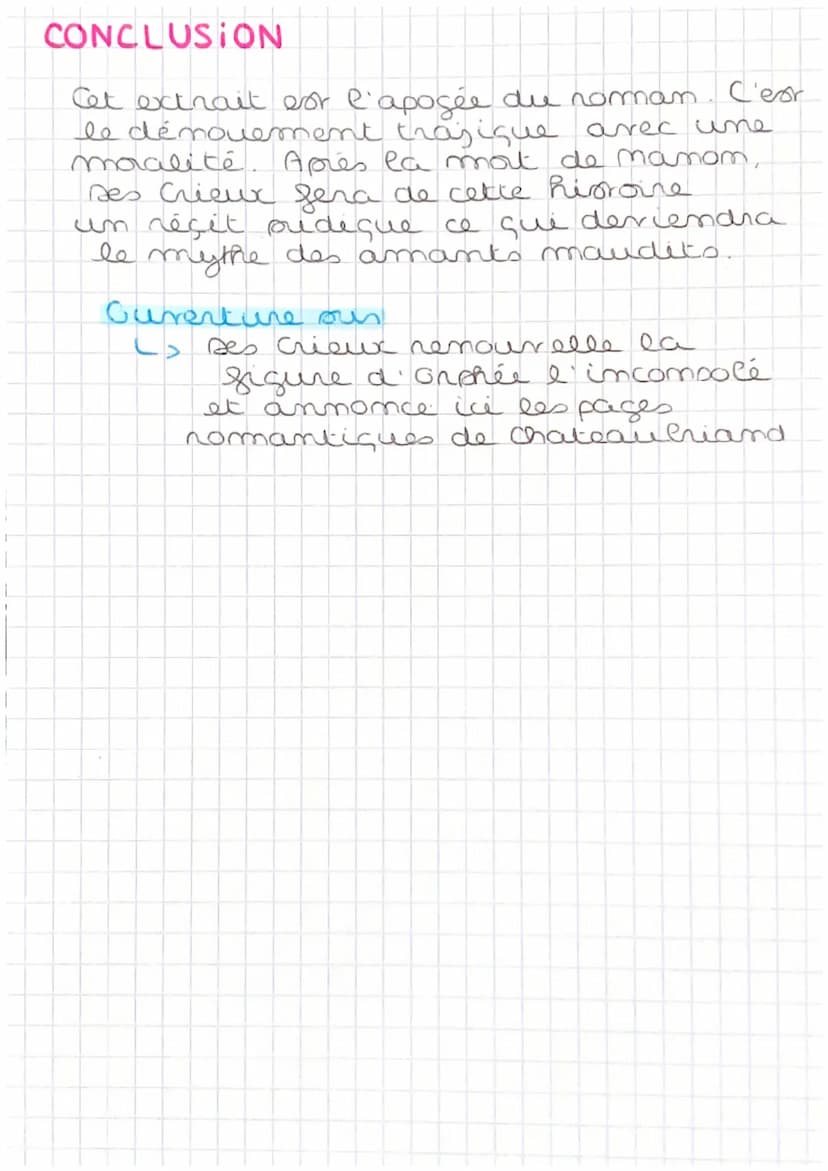 CONCLUSION
Cet extrait est l'apogée du roman. C'est
le dénouement tragique avec une
moralité. Après la mort de Manon,
Des Grieux fera de cette histoire
un récit pudique ce qui deviendra
le mythe des amants maudits.
Ouverture sur
↳ Des Grieux renouvelle la
figure d'Orphée l'inconsolé
et annonce ici les pages
romantiques de Chateaubriand